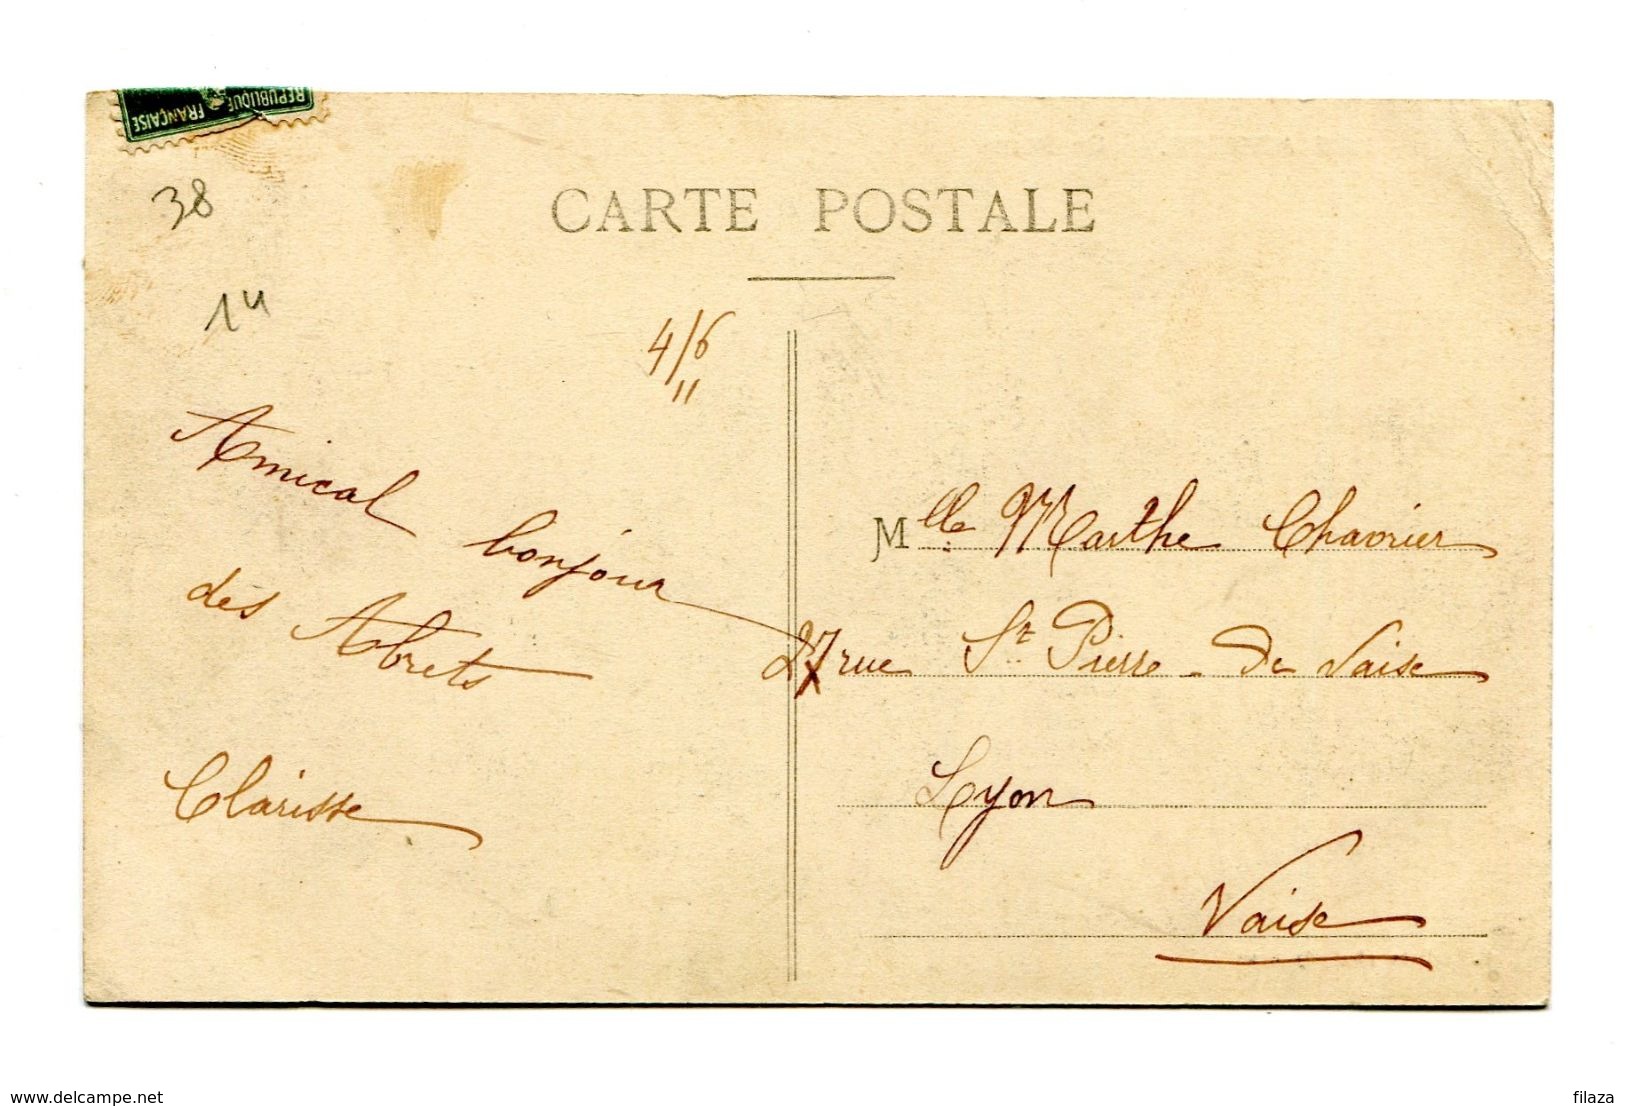 REPUBLIQUE
FRANÇAISE
38
CARTE POSTALE
14
4/6
11
Amical bonjour
des Abrets
Clarisse
Mlle Marthe Chavrier
27 rue St Pierre - De Vaise
Lyon
Vaise
www.delcampe.net
filaza